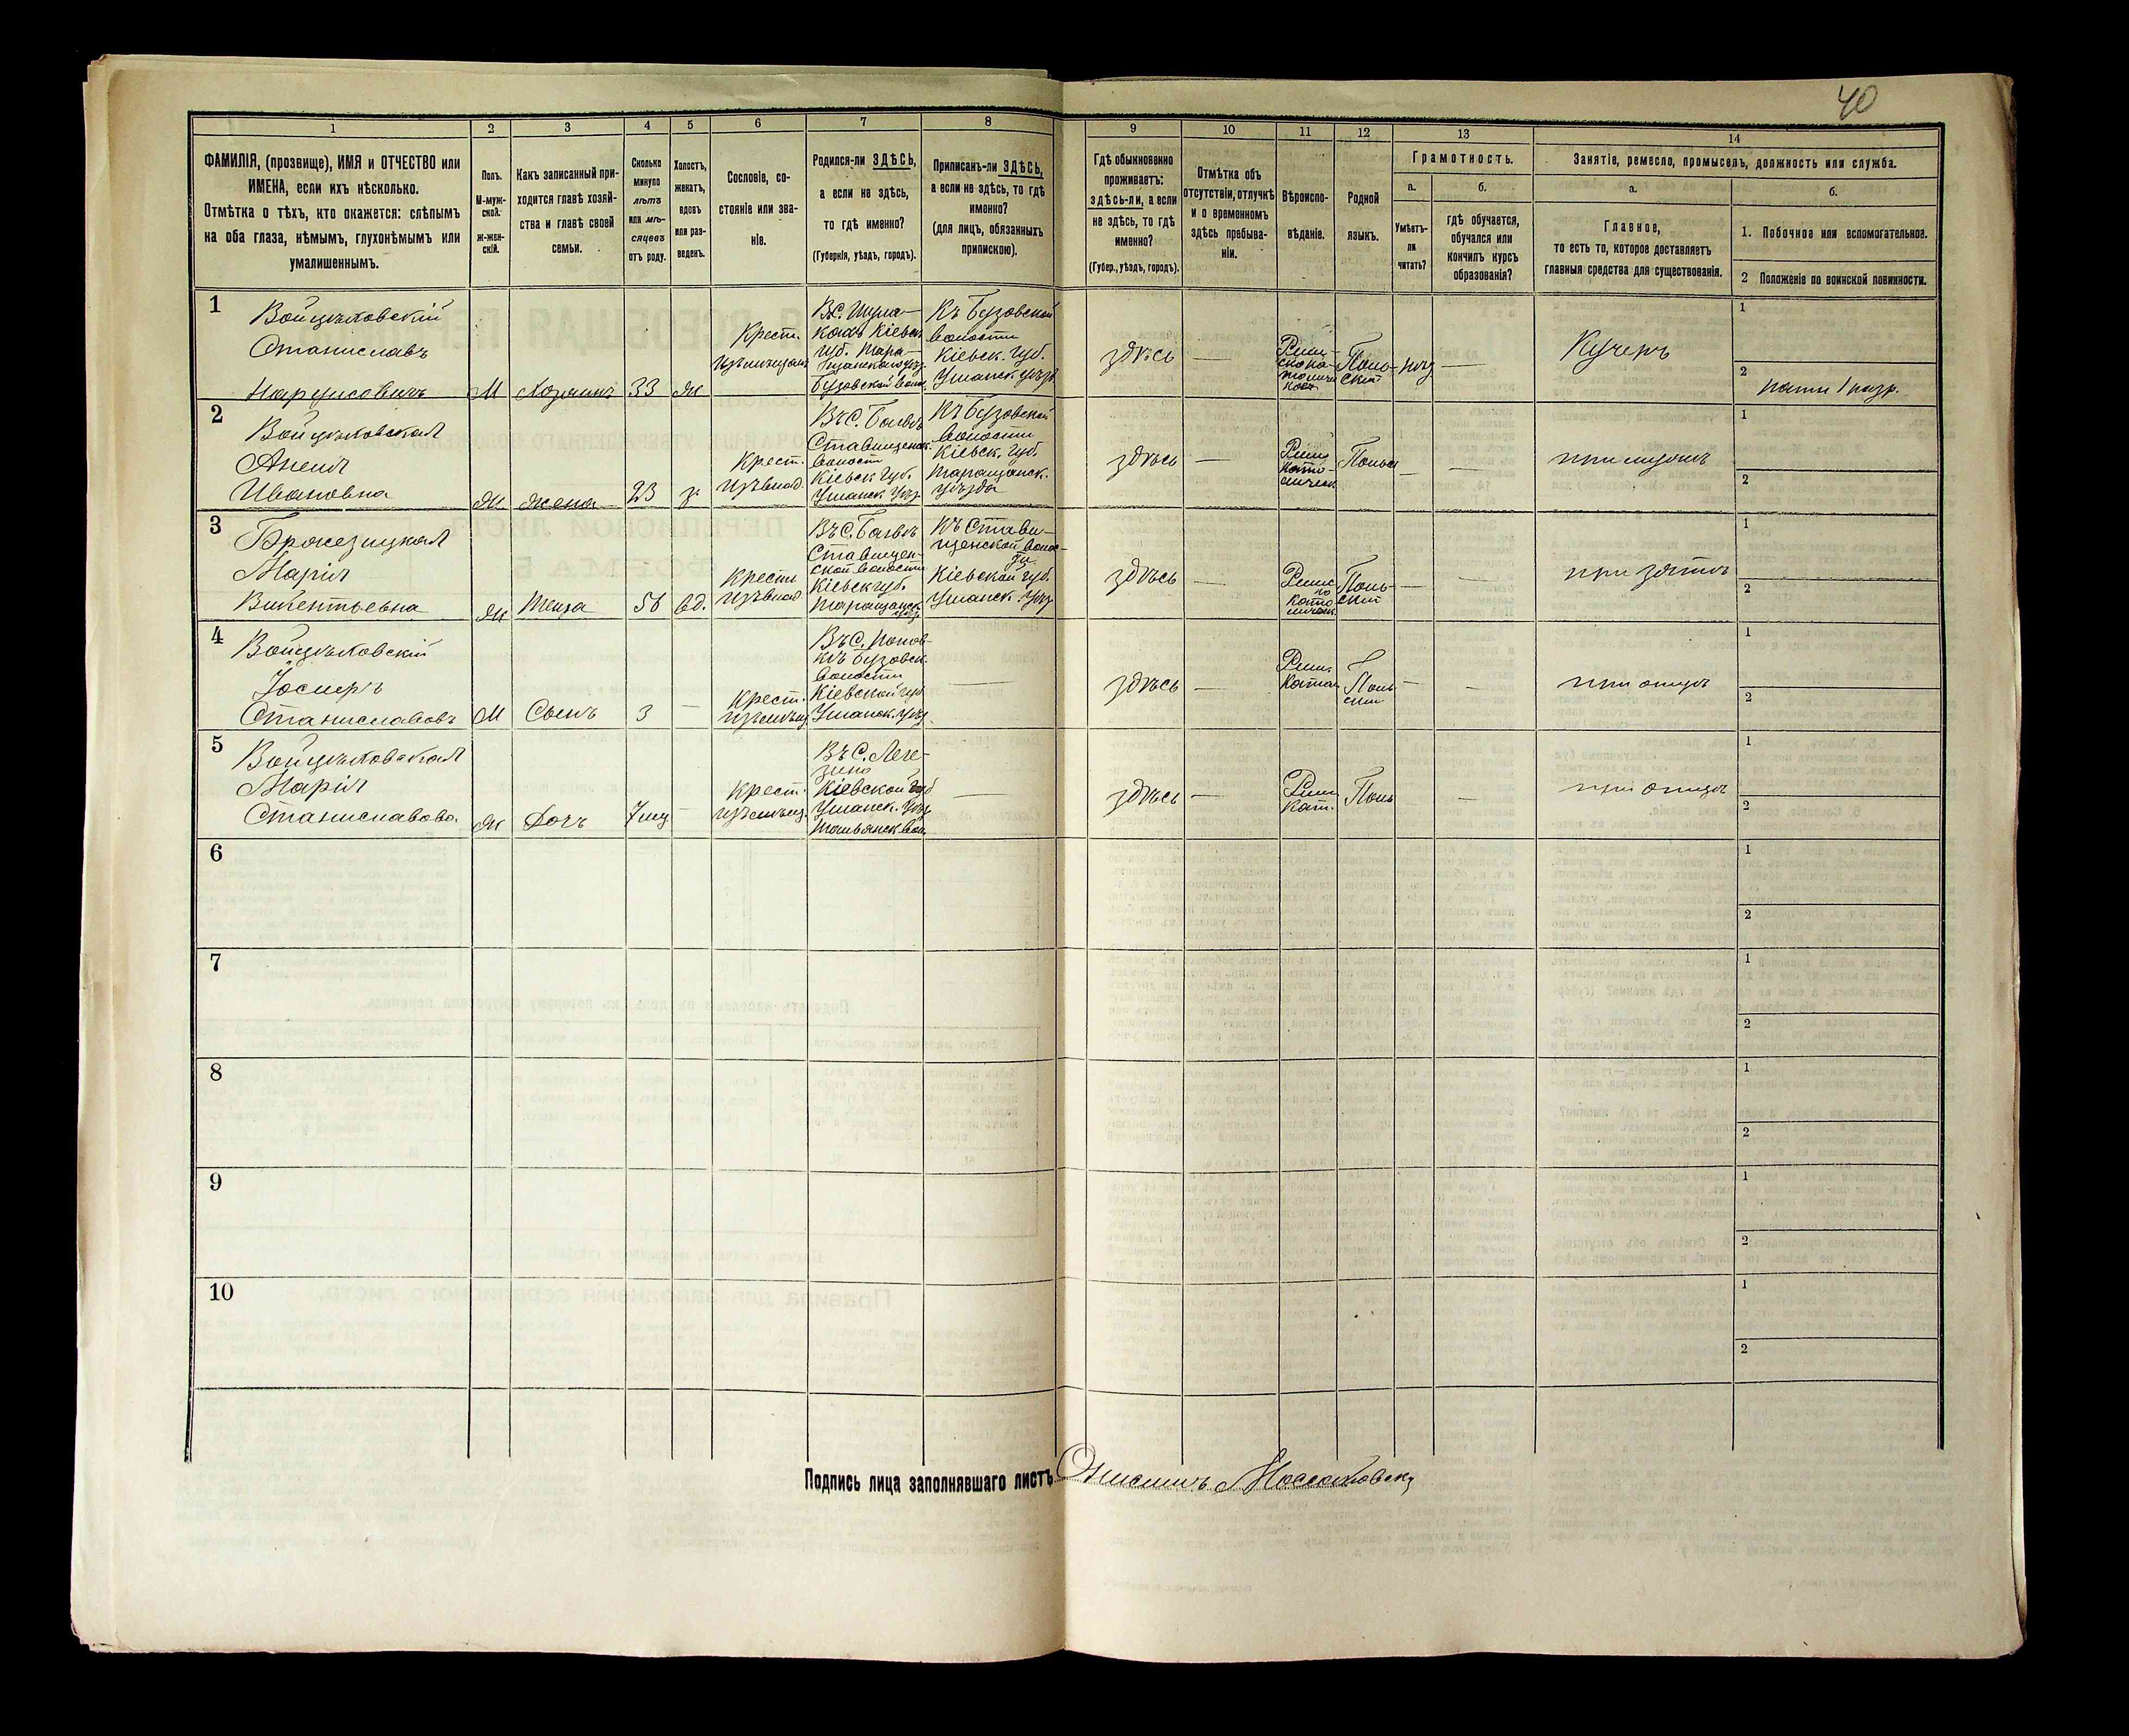 40
1
2
3
4
5
6
7
8
9
10
11
12
13
14
ФАМИЛІЯ, (прозвище), ИМЯ и ОТЧЕСТВО или
ИМЕНА, если ихъ нѣсколько.
Отмѣтка о тѣхъ, кто окажется: слѣпымъ
на оба глаза, нѣмымъ, глухонѣмымъ или
умалишеннымъ.
Полъ.
М-муж-
ской.
ж-жен-
скій.
Какъ записанный при-
ходится главѣ хозяй-
ства и главѣ своей
семьи.
Сколько
минуло
лѣтъ
или мѣ-
сяцевъ
отъ роду.
Холостъ,
женатъ,
вдовъ
или раз-
веденъ.
Сословіе, со-
стояніе или зва-
ніе.
Родился-ли ЗДѢСЬ,
а если не здѣсь,
то гдѣ именно?
(Губернія, уѣздъ, городъ).
Приписанъ-ли ЗДѢСЬ,
а если не здѣсь, то гдѣ
именно?
(для лицъ, обязанныхъ
припискою).
Гдѣ обыкновенно
проживаетъ:
здѣсь-ли, а если
не здѣсь, то гдѣ
именно?
(Губер., уѣздъ, городъ).
Отмѣтка объ
отсутствіи, отлучкѣ
и о временномъ
здѣсь пребыва-
ніи.
Вѣроиспо-
вѣданіе.
Родной
языкъ.
Грамотность.
а.
Умѣетъ-
ли
читать?
б.
гдѣ обучается,
обучался или
кончилъ курсъ
образованія?
Занятіе, ремесло, промыселъ, должность или служба.
а.
Главное,
то есть то, которое доставляетъ
главныя средства для существованія.
б.
1. Побочное или вспомогательное.
2 Положеніе по воинской повинности.
1
Войцѣховскій
Станиславъ
Нарцисовичъ
М
Хозяинъ
33
ж
Крест.
Кіевск.
Губ. Тара-
Бузовской Вол.
Къ Бузовской
Волости
Кіевск. Губ.
Уманск. Уѣзд.
здѣсь
—
Рим-
ско ка-
толиче
Поль-
скій
—
Кучеръ
1
2
2
Войцѣховская
Анеля
Ивановна
Ж
Жена
23
з.
Крест.
Въ С.
Волости
Кіевск. Губ.
Уманск. Уѣзд.
Къ Бузовской
Волости
Кіевск. Губ.
Таращанск.
Уѣзда
здѣсь
—
Римс
като-
лическ
Польск
—
—
при мужѣ
1
2
3
Марія
Викентьевна
Ж
Теща
56
вд.
Крест.
Въ С.
Ставищен-
ской Волости
Кіевск Губ.
Таращанск.
Къ Стави-
щенской Волос-
Кіевской Губ.
Уманск. Уѣзд
здѣсь
—
Римс
ко
като
лическ
Поль-
скій
—
—
при зятѣ
1
2
4
Войцѣховскій
Іосифъ
Станиславовъ
М
Сынъ
3
—
Крест.
Въ С. Попов-
кѣ Бузовск.
Волости
Кіевской Губ
Уманск. Уѣзд.
—
здѣсь
—
Рим.
Катол
Поль
скій
—
—
при отцѣ
1
2
5
Войцѣховская
Марія
Станиславова.
Ж
Дочь
7 мц
—
Крест.
Въ С. Леге-
зино
Кіевской Губ
Уманск. Уѣзд
Тальянск Вол.
—
здѣсь
—
Рим
Кат.
Поль
—
при отцѣ
1
2
6
1
2
7
1
2
8
1
2
9
1
2
10
1
2
Подпись лица заполнявшаго листъ